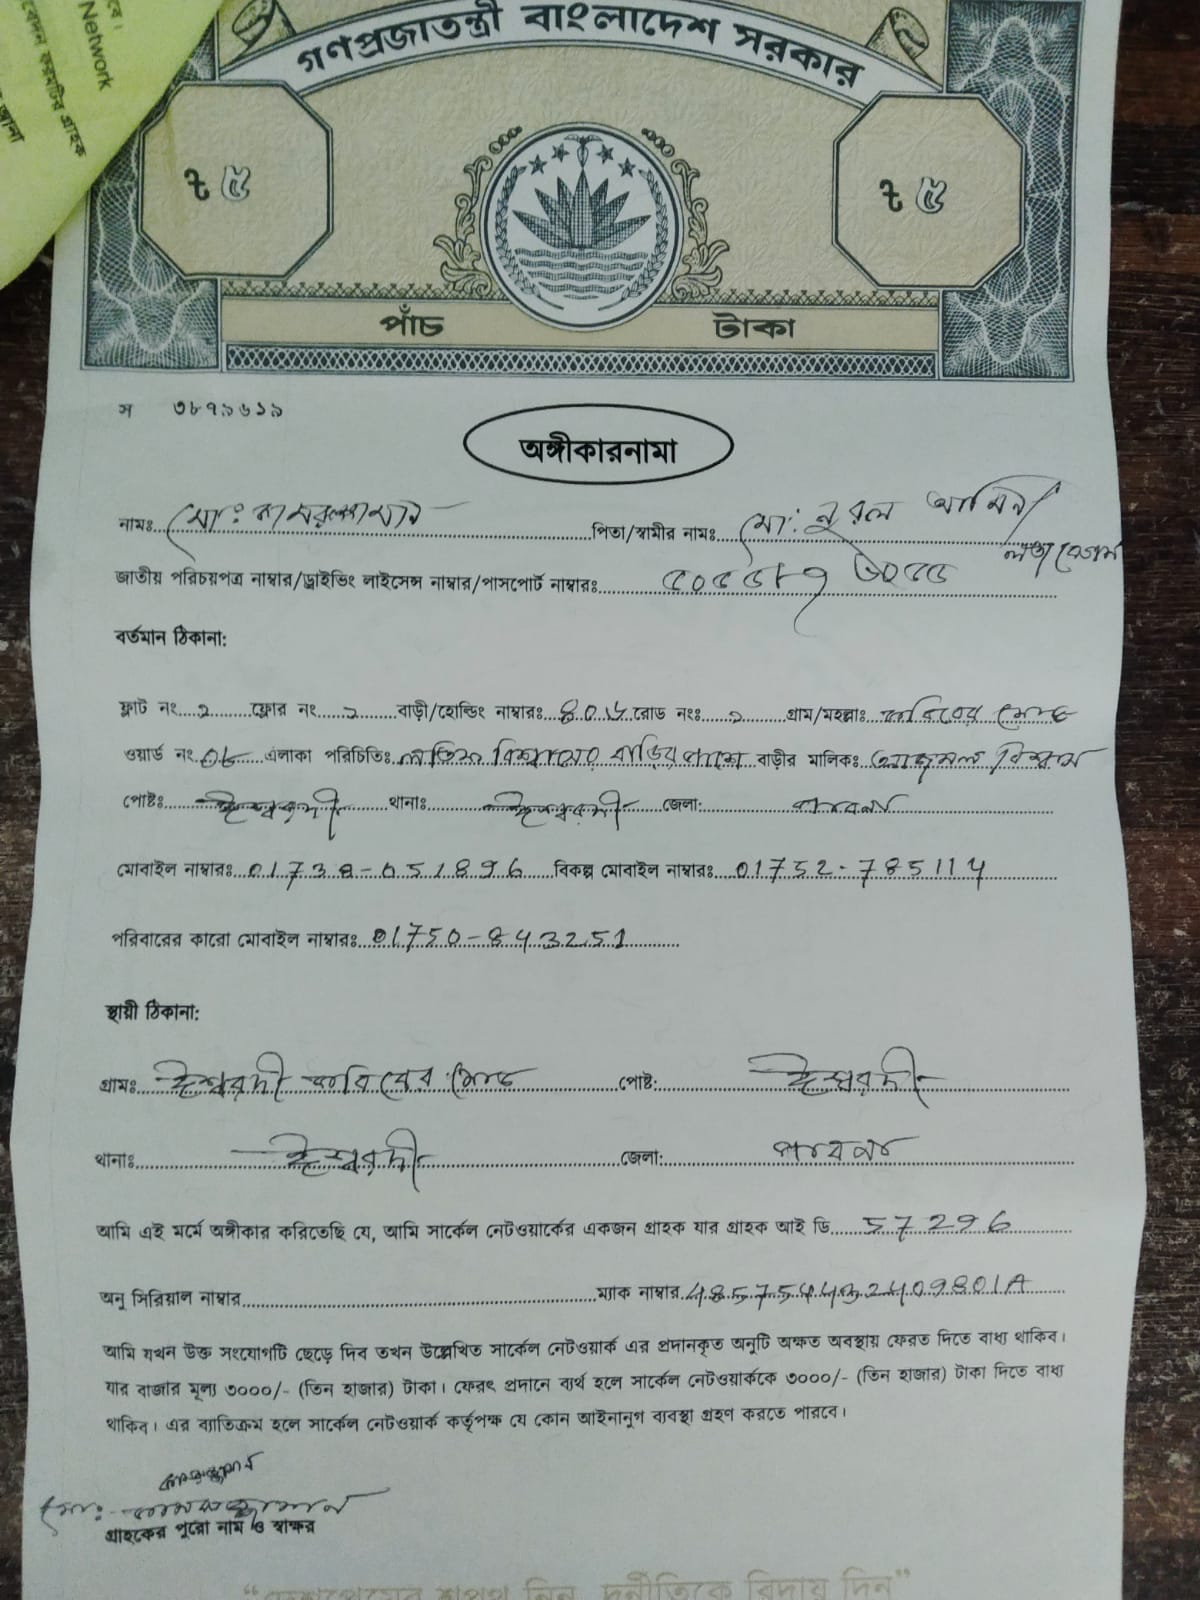 বে।
Network
বেদন ফরমটির গ্রাহক
জানা
গণপ্রজাতন্ত্রী বাংলাদেশ সরকার
৳ ৫ ৳ ৫
পাঁচ টাকা
স ৩৮৭৯৬১৯
অঙ্গীকারনামা
নামঃ মোঃ কামরুজ্জামান পিতা/স্বামীর নামঃ মো: নুরুল আমিন
লতা বেগম
জাতীয় পরিচয়পত্র নাম্বার/ড্রাইভিং লাইসেন্স নাম্বার/পাসপোর্ট নাম্বারঃ
বর্তমান ঠিকানা:
ফ্লাট নং ২ ফ্লোর নং ২ বাড়ী/হোল্ডিং নাম্বারঃ রোড নংঃ ২ গ্রাম/মহল্লাঃ মোড়
ওয়ার্ড নং ০৮ এলাকা পরিচিতিঃ বিশ্বাসের বাড়ির পাশে বাড়ীর মালিকঃ আজমল বিশ্বাস
পোষ্টঃ ঈশ্বরদী থানাঃ ঈশ্বরদী জেলা: পাবনা
মোবাইল নাম্বারঃ 01738-051896 বিকল্প মোবাইল নাম্বারঃ 01752-785114
পরিবারের কারো মোবাইল নাম্বারঃ 01750-843251
স্থায়ী ঠিকানা:
গ্রামঃ ঈশ্বরদী মোড় পোষ্ট: ঈশ্বরদী
থানাঃ ঈশ্বরদী জেলা: পাবনা
আমি এই মর্মে অঙ্গীকার করিতেছি যে, আমি সার্কেল নেটওয়ার্কের একজন গ্রাহক যার গ্রাহক আই ডি 57296
অনু সিরিয়াল নাম্বার ম্যাক নাম্বার
আমি যখন উক্ত সংযোগটি ছেড়ে দিব তখন উল্লেখিত সার্কেল নেটওয়ার্ক এর প্রদানকৃত অনুটি অক্ষত অবস্থায় ফেরত দিতে বাধ্য থাকিব।
যার বাজার মূল্য ৩০০০/- (তিন হাজার) টাকা। ফেরৎ প্রদানে ব্যর্থ হলে সার্কেল নেটওয়ার্ককে ৩০০০/- (তিন হাজার) টাকা দিতে বাধ্য
থাকিব। এর ব্যাতিক্রম হলে সার্কেল নেটওয়ার্ক কর্তৃপক্ষ যে কোন আইনানুগ ব্যবস্থা গ্রহণ করতে পারবে।
কামরুজ্জামান
মোঃ কামরুজ্জামান
গ্রাহকের পুরো নাম ও স্বাক্ষর
“দেশপ্রেমের শপথ নিন, দুর্নীতিকে বিদায় দিন”